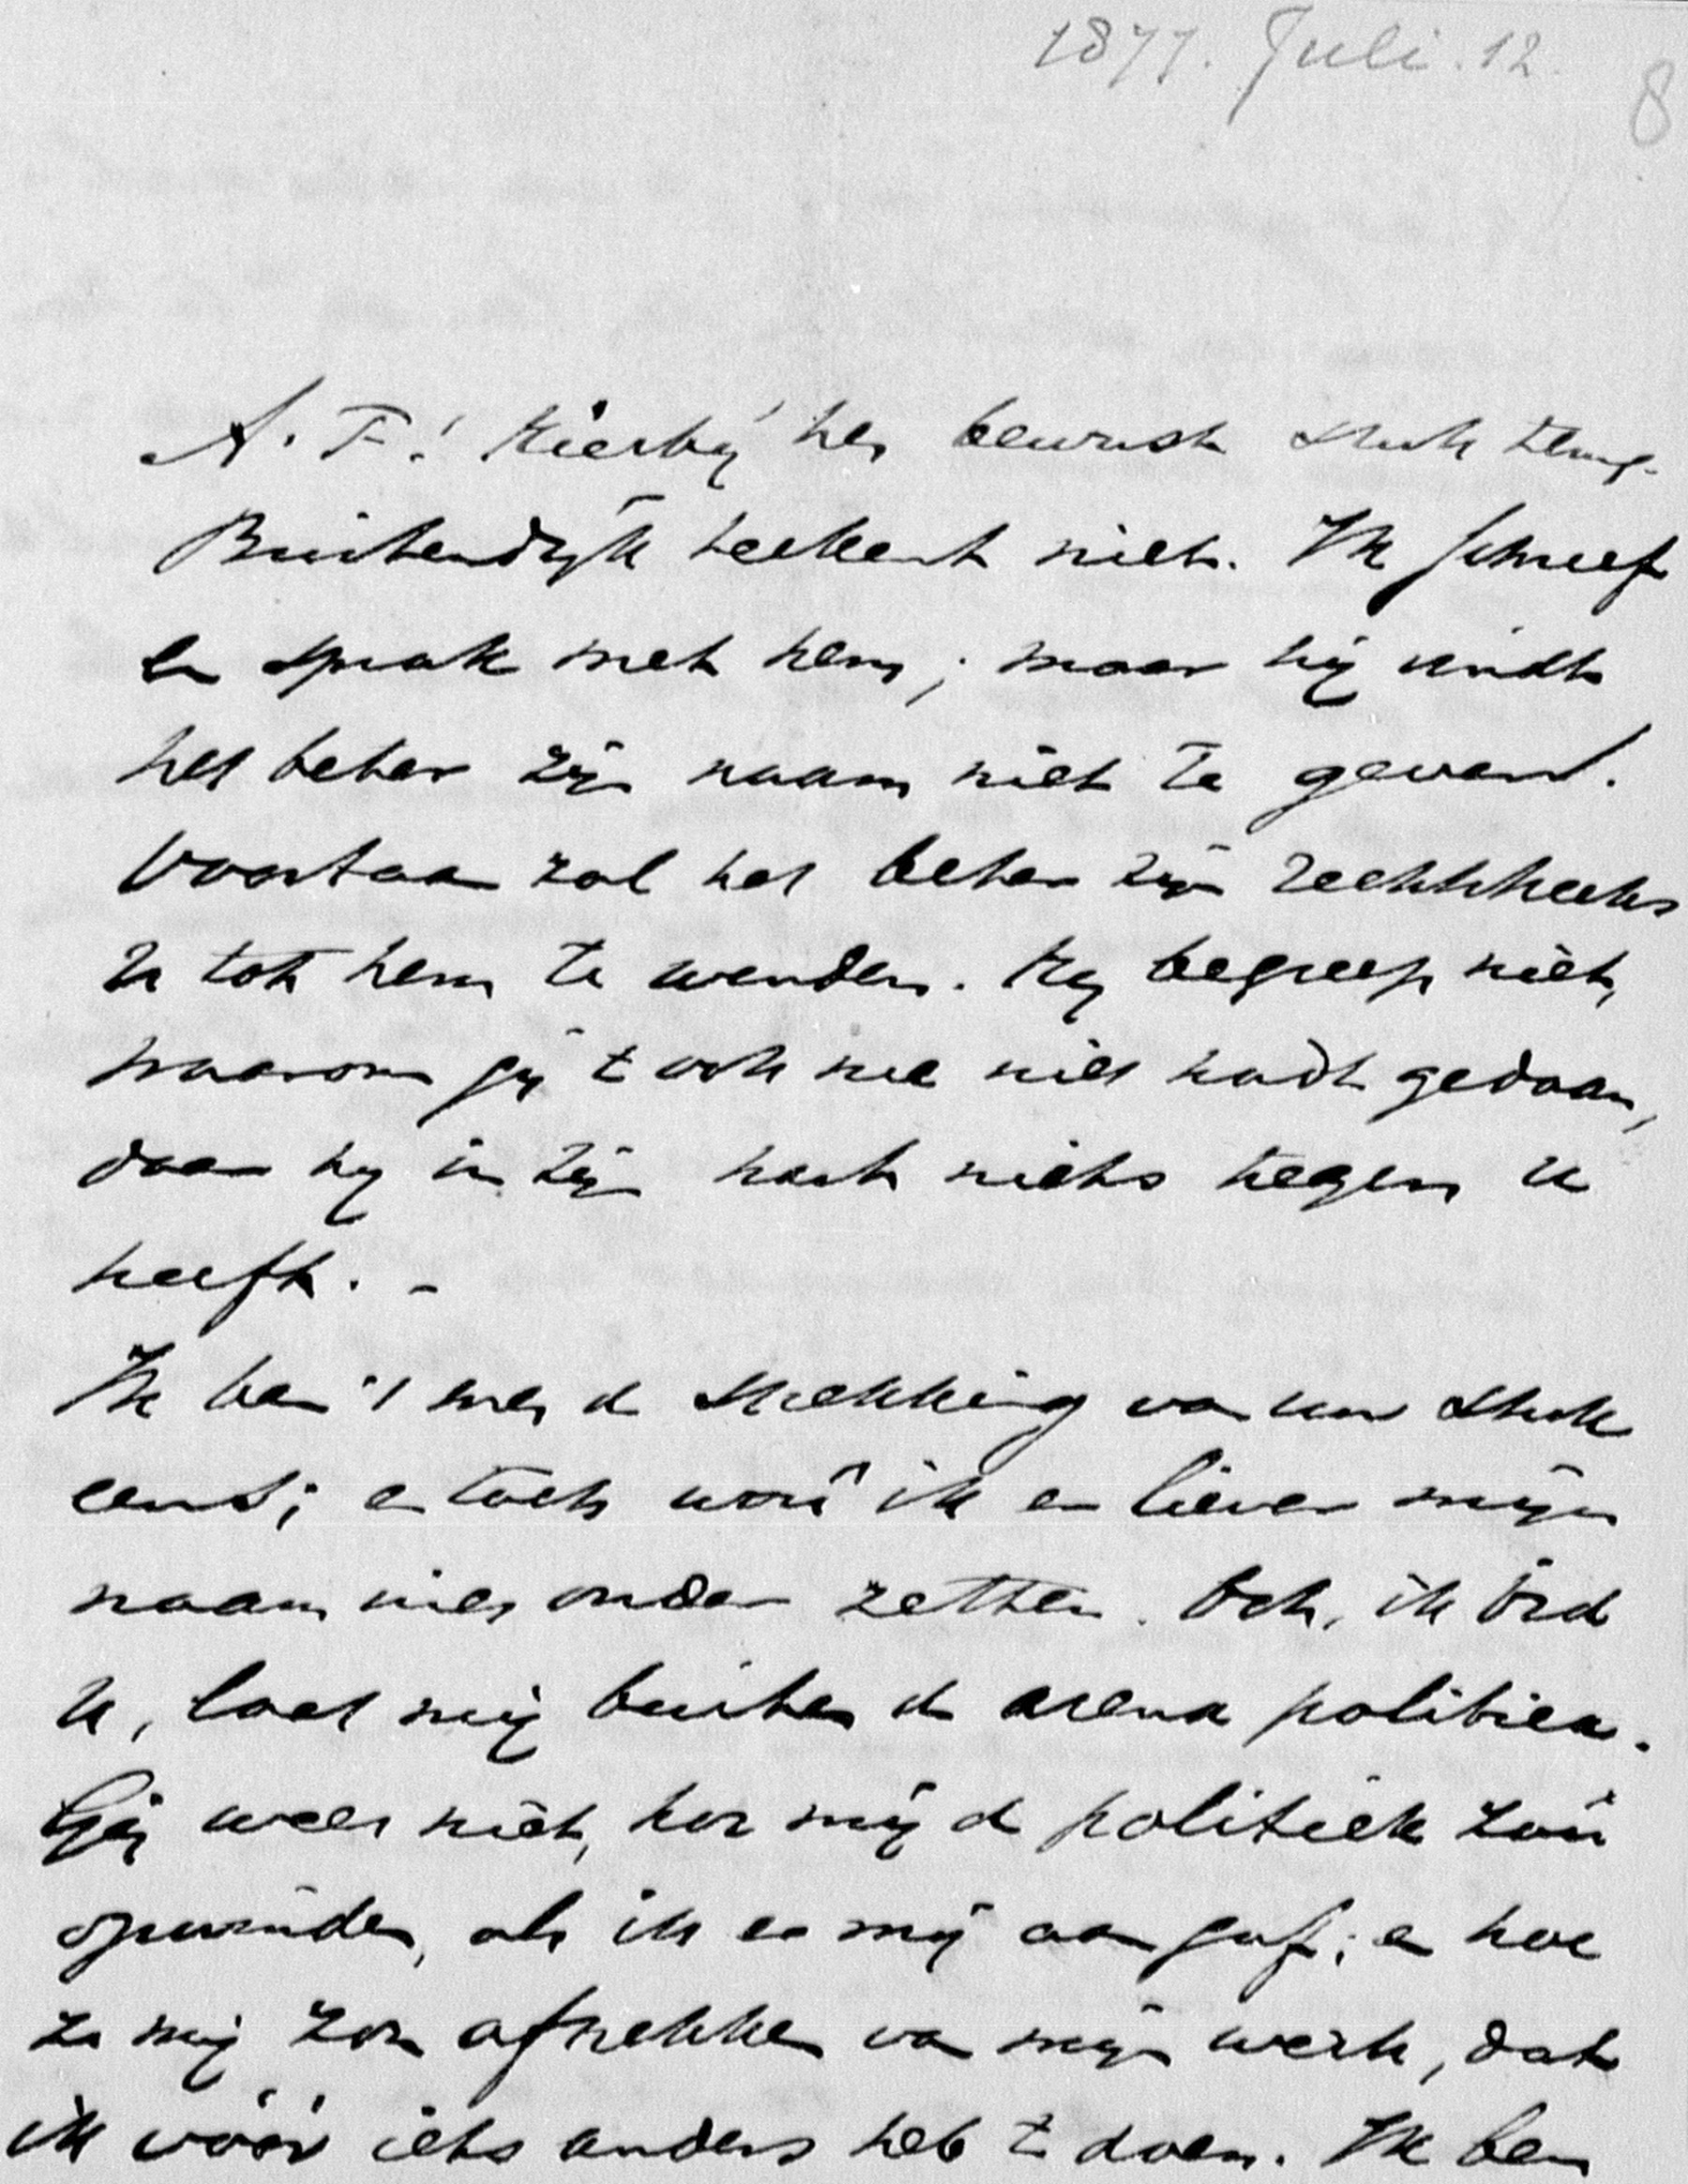 1877. Juli. 12.
8
A. F.! Hierbij het bewust stuk terug.
Buitendijk teekent niet. Ik schreef
en sprak met hem; maar hij vindt
het beter zijn naam niet te geven.
Voortaan zal het beter zijn rechtstreeks
U tot hem te wenden. Hij begreep niet,
waarom gij 't ook nu niet hadt gedaan,
daar hij in zijn hart niets tegen U
heeft. -
Ik ben 't met de strekking van uw stuk
eens; en toch woû ik er liever mijn
naam niet onder zetten. Och, ik bid
U, laat mij buiten de arena politica.
Gij weet niet, hoe mij de politiek zou
opwinden, als ik er mij aan gaf; en hoe
ze mij zou aftrekken van mijn werk, dat
ik vóór iets anders heb te doen. Ik ben